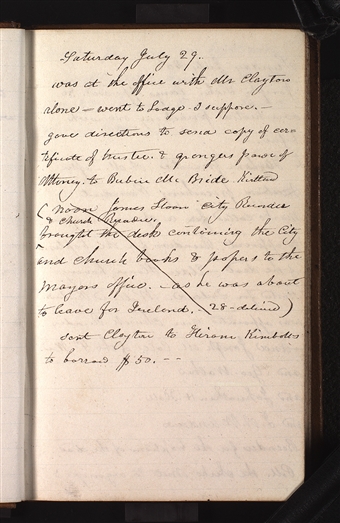 Saturday July 29.
was at the office with Mr Clayton
alone — went to Lodge I suppose. —
gave directions to send copy of cer
tificate of trustee & grangers power of
Attorney. to Rubin Mc Bride Kirtland
(Noon James Sloan City Recorder
& Church Recorder.
brought the desk containing the City
and church books & papers to the
Mayors office. — as he was about
to leave for Ireland.
sent Clayton to Hiram Kimballs
to borrow $50. — —